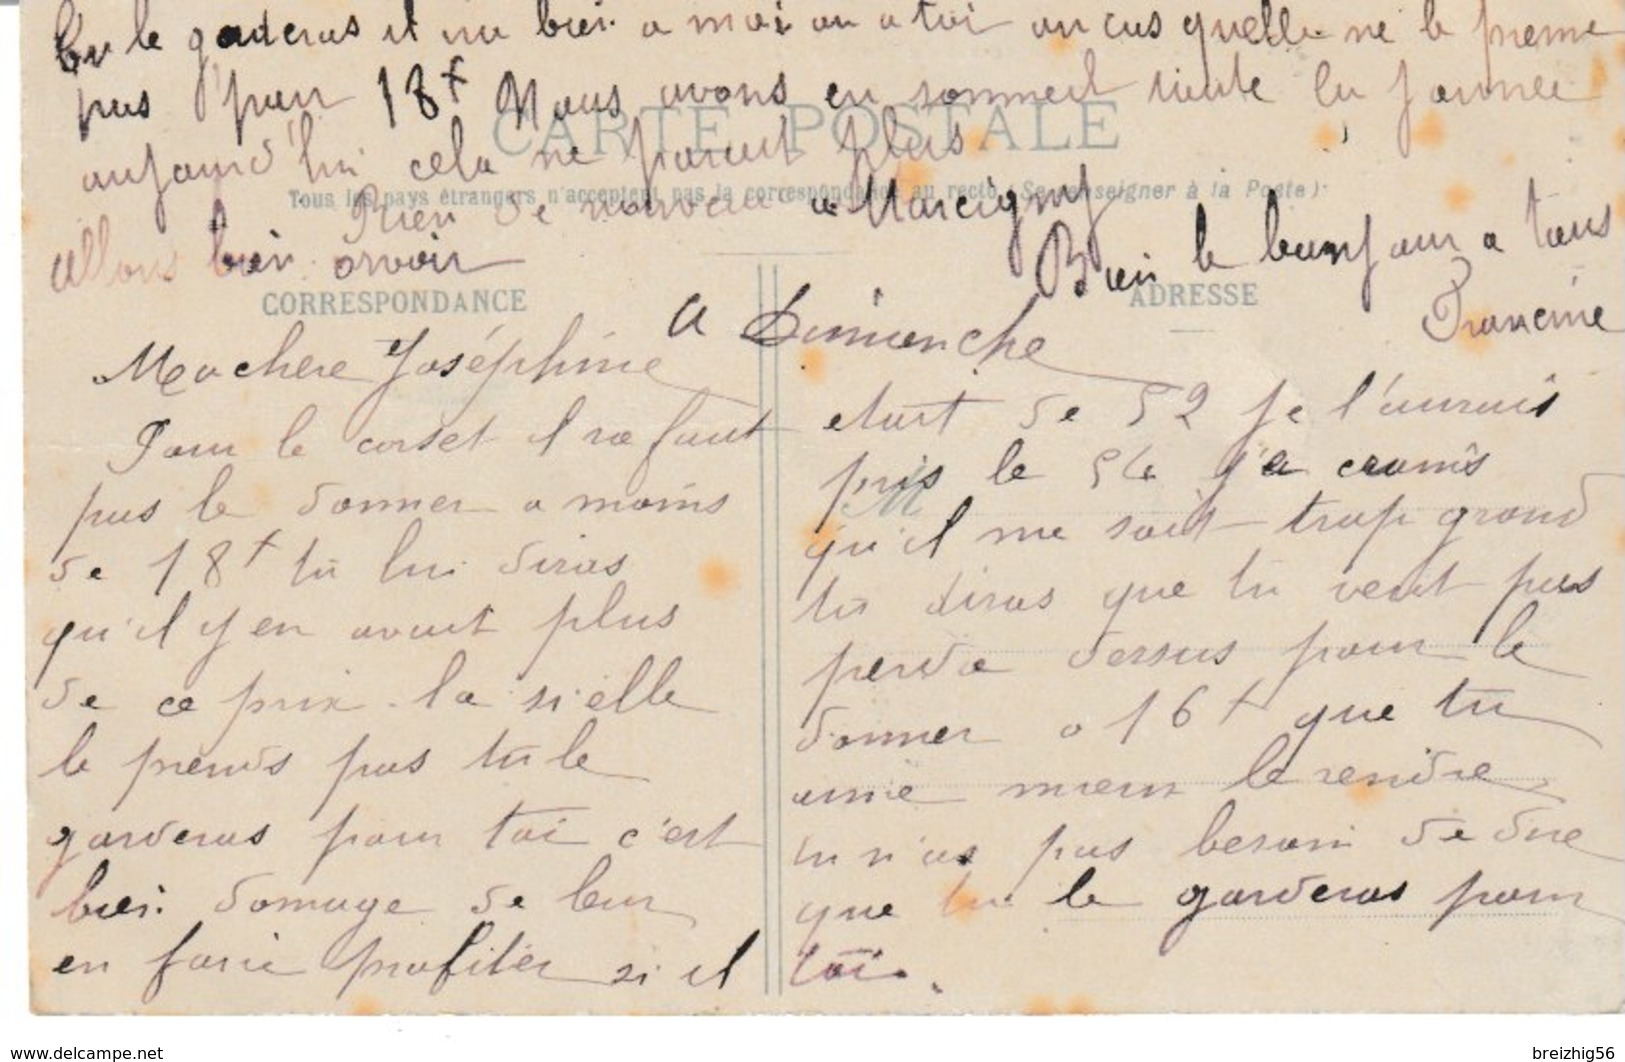 tu le garderas il ira bien a moi ou a toi au cas quelle ne le prenne
pas pour 18f Nous avons en sommeil toute la journee
CARTE POSTALE
aujourd'hui cela ne parait plus
Tous les pays étrangers n'acceptent pas la correspondance au recto (Se renseigner à la Poste)
Rien de nouveau a Marcigny
allons bien orvoir
Bien le bonjour a tous
Francine
CORRESPONDANCE
ADRESSE
A Dimanche
Ma chere Joséphine
Pour le corset il ne faut
pas le donner a moins
de 18f tu lui diras
qu'il y en avait plus
de ce prix la si elle
le prends pas tu le
garderas pour toi c'est
bien domage de leur
en faire profiter si il
etait de 52 je l'aurais
pris le 54 j'a crains
qu'il me soit trop grand
tu diras que tu veut pas
perdre dessus pour le
donner a 16f que tu
aime mieux le rendre
tu n'as pas besoin de dire
que tu le garderas pour
toi.
www.delcampe.net
breizhig56